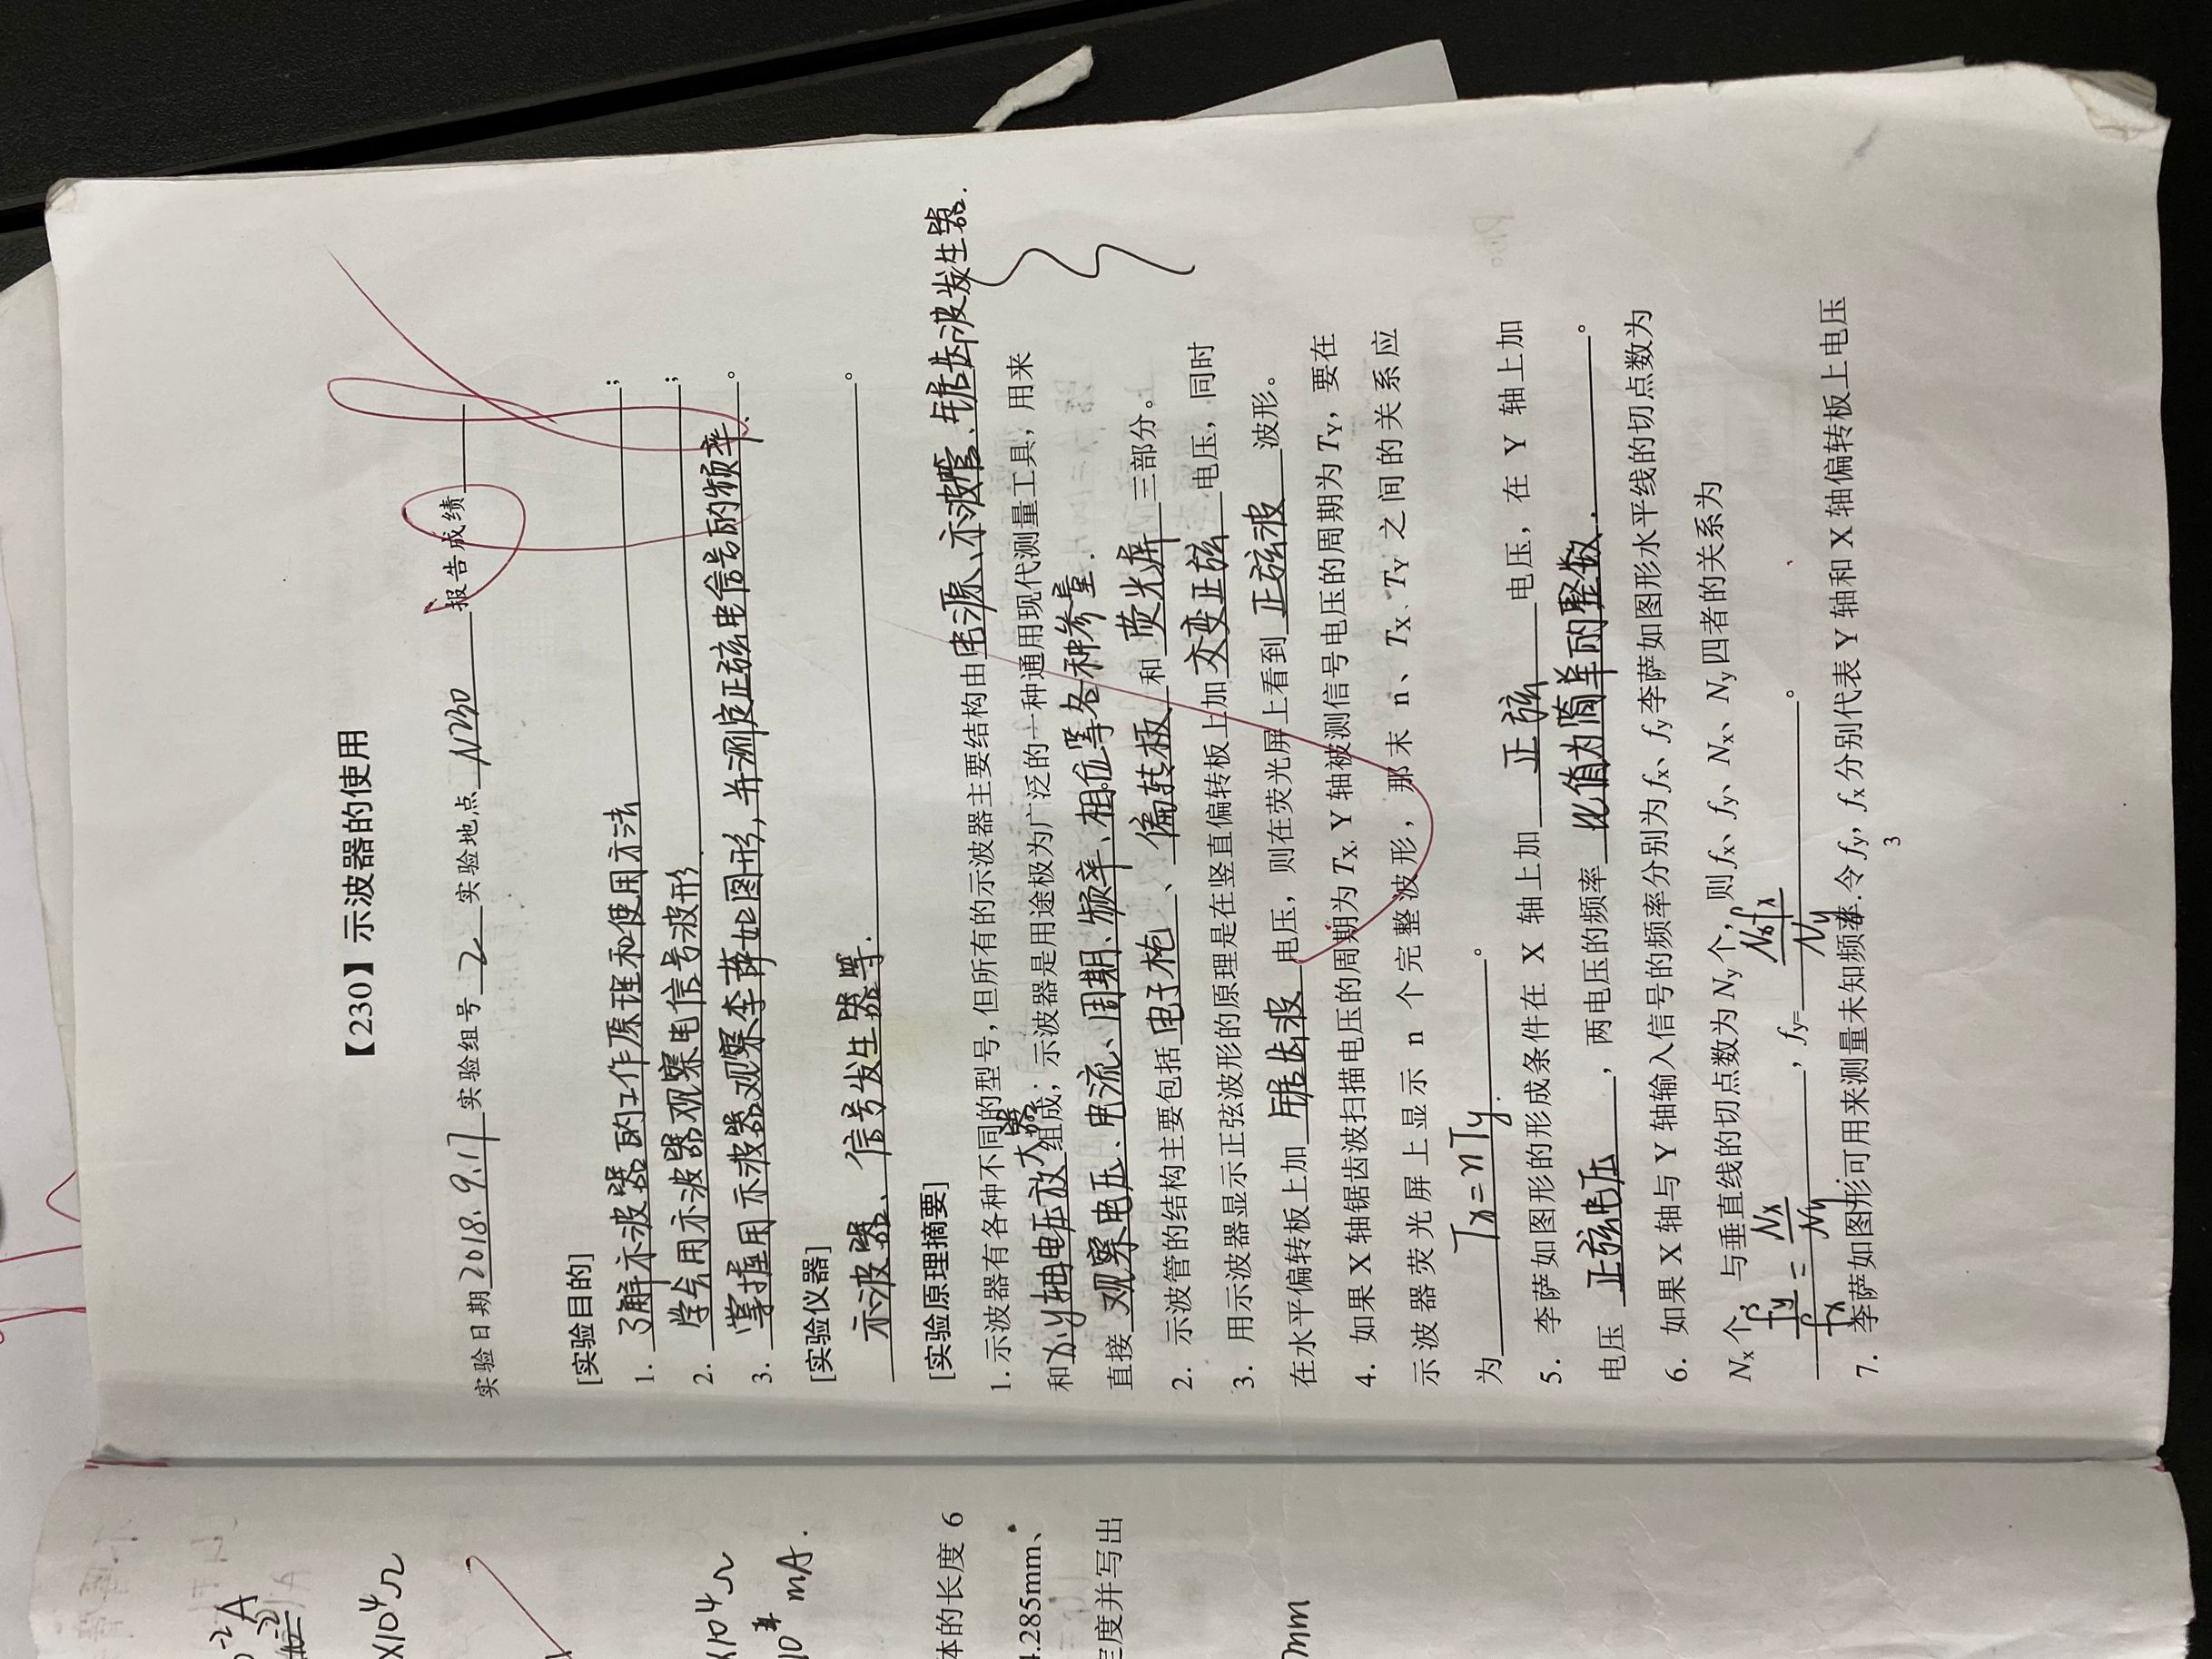 【230】示波器的使用
实验日期 2018.9.17 实验组号 2 实验地点 N230 报告成绩
98
[实验目的]
1. 了解示波器的工作原理和使用方法 ;
2. 学会用示波器观察电信号波形. ;
3. 掌握用示波器观察李萨如图形,并测定正弦电信号的频率. 。
[实验仪器]
示波器、信号发生器等. 。
[实验原理摘要]
1.示波器有各种不同的型号,但所有的示波器主要结构由电源、示波管、锯齿波发生器.
和x.y轴电压放大器组成;示波器是用途极为广泛的一种通用现代测量工具,用来
直接 观察电压、电流、周期、频率、相位等各种参量.
2. 示波管的结构主要包括 电子枪 、 偏转板 和 荧光屏 三部分。
3. 用示波器显示正弦波形的原理是在竖直偏转板上加 交变正弦 电压,同时
在水平偏转板上加 锯齿波 电压,则在荧光屏上看到 正弦波 波形。
4. 如果 X 轴锯齿波扫描电压的周期为 TX, Y 轴被测信号电压的周期为 TY,要在
示波器荧光屏上显示 n 个完整波形,那末 n、TX、TY 之间的关系应
为 Tx=nTy. 。
5. 李萨如图形的形成条件在 X 轴上加 正弦 电压,在 Y 轴上加
电压 正弦电压 ,两电压的频率 比值为简单的整数. 。
6. 如果 X 轴与 Y 轴输入信号的频率分别为 fx、fy 李萨如图形水平线的切点数为
Nx 个,与垂直线的切点数为 Ny 个,则 fx、fy、Nx、Ny 四者的关系为
fy/fx = Nx/Ny. ,fy= Nxfx/Ny 。
7. 李萨如图形可用来测量未知频率.令 fy,fx 分别代表 Y 轴和 X 轴偏转板上电压
3
-2 A
×10⁴Ω
×10⁴Ω
mA.
体的长度 6
4.285mm、
定度并写出
mm